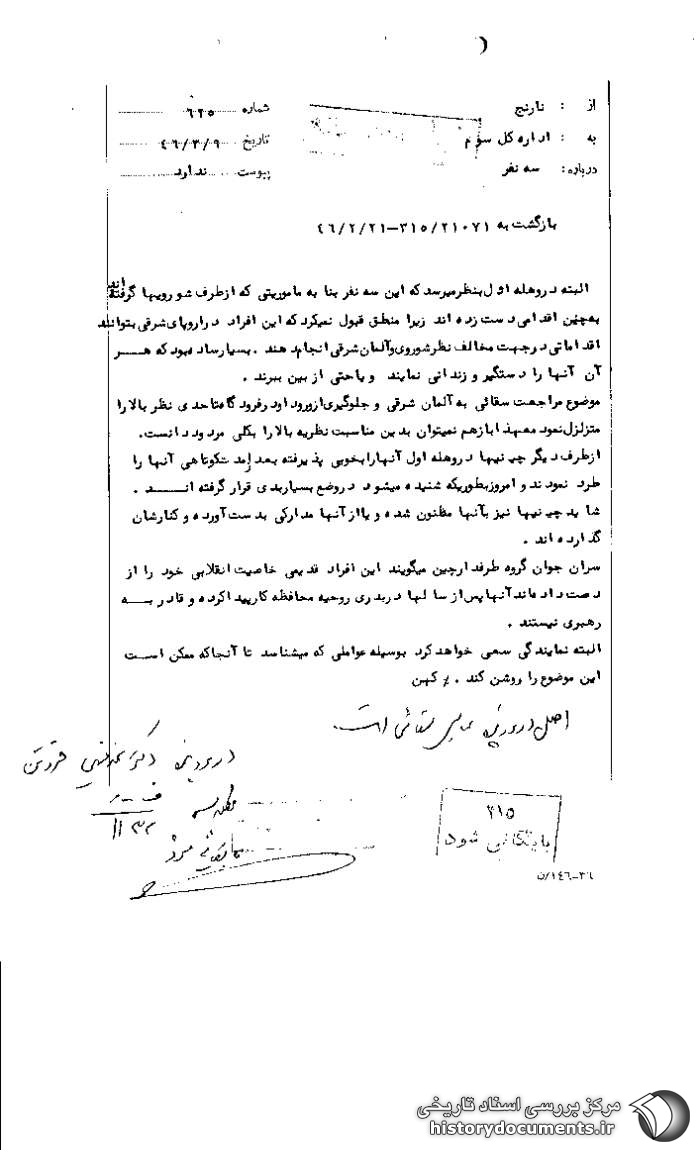 از : نارنج
شماره ٦٢٥
به : اداره کل سوم
تاریخ ٤٦/٣/٩
درباره: سه نفر
پیوست ندارد
بازگشت به ٣١٥/٢١٠٧١-٤٦/٢/٢١
البته در وهله اول بنظر میرسد که این سه نفر بنا به ماموریتی که از طرف شورویها گرفته اند
به چنین اقدامی دست زده اند زیرا منطق قبول نمیکرد که این افراد در اروپای شرقی بتوانند
اقداماتی در جهت مخالف نظر شوروی و آلمان شرقی انجام دهند . بسیار ساده بود که هر
آن آنها را دستگیر و زندانی نمایند و یا حتی از بین ببرند .
موضوع مراجعت سقائی به آلمان شرقی و جلوگیری از ورود او در فرودگاه تا حدی نظر بالا را
متزلزل نمود معهذا باز هم نمیتوان بدین مناسبت نظریه بالا را بکلی مردود دانست.
از طرف دیگر چینیها در وهله اول آنها را بخوبی پذیرفته بعد از مدت کوتاهی آنها را
طرد نمودند و امروز بطوریکه شنیده میشود در وضع بسیار بدی قرار گرفته انـــد .
شاید چینیها نیز بآنها مظنون شده و یا از آنها مدارکی بدست آورده و کنارشان
گذارده اند .
سران جوان گروه طرفدار چین میگویند این افراد قدیمی خاصیت انقلابی خود را از
دست داده اند آنها پس از سالها دربدری روحیه محافظه کار پیدا کرده و قادر بـــه
رهبری نیستند .
البته نمایندگی سعی خواهد کرد بوسیله عواملی که میشناسد تا آنجا که ممکن اسـت
این موضوع را روشن کند . کهن
اصل در پرونده سقائی است
در پرونده دکتر فروتن
٣١٥
بایگانی شود
مرکز بررسی اسناد تاریخی
historydocuments.ir